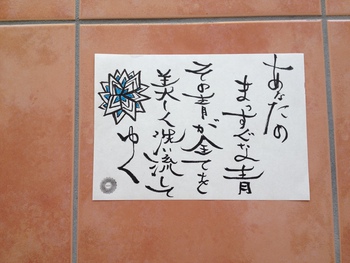 あなたの
まっすぐな青
その青が全てを
美しく洗い流して
ゆく